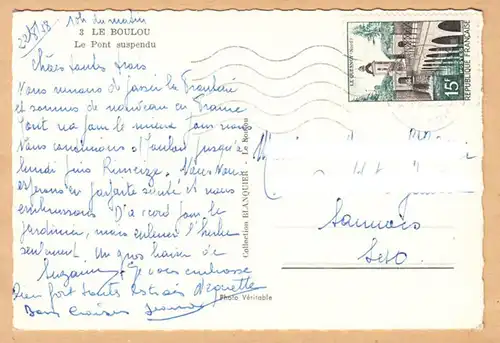 22/8/58 10h du matin
3 LE BOULOU
Le Pont suspendu
Chers toutes trois
Nous venons de passer la Frontière
et sommes de nouveau en France
Tout va pour le mieux
Nous continuons jusqu'à
lundi puis Rimeize. Nous vous
espérons en parfaite santé et nous
embrassons D'accord pour le
Jardinier, mais enlever l'herbe
seulement. Un gros baiser de
Suzanne Je vous embrasse
bien fort toutes les trois Huguette
Bons baisers
Collection BLANQUIER - Le Boulou
Photo Véritable
LE QUESNOY
15F
REPUBLIQUE FRANÇAISE
Sannois
S et O